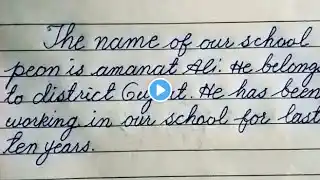 The name of our school
peon is amanat Ali. He belongs
to district. He has been
working in our school for last
ten years.